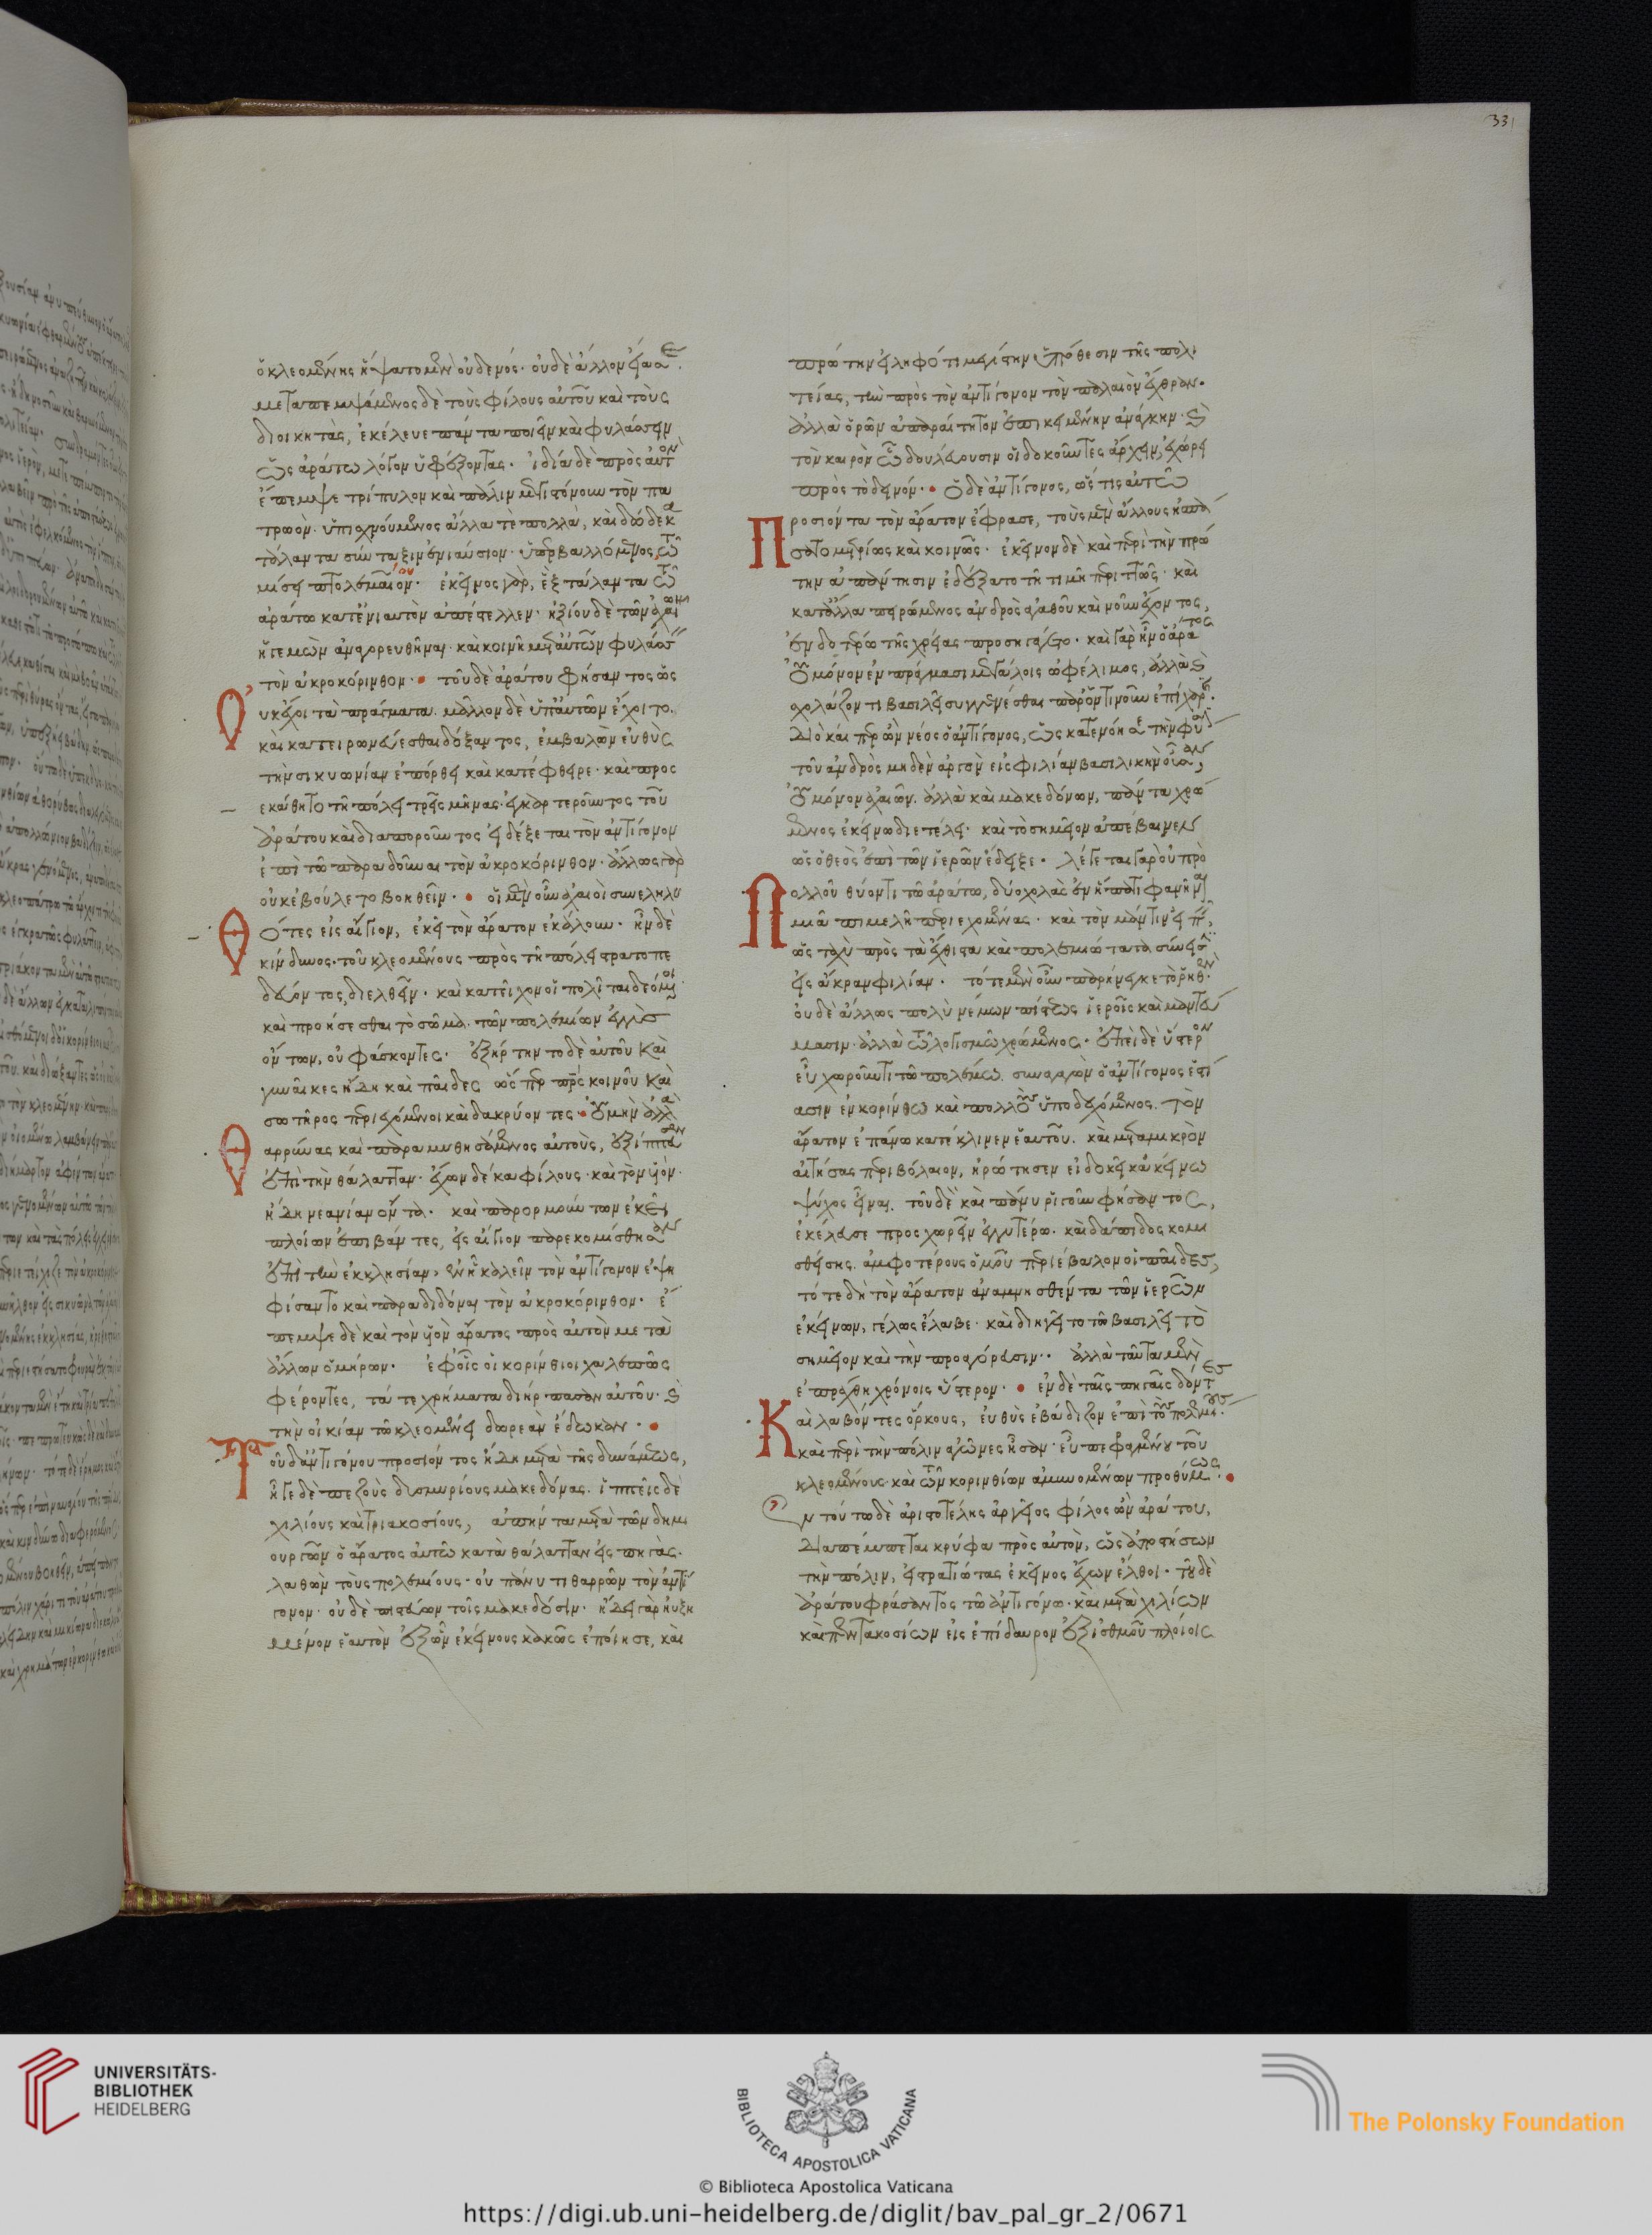 ὁ κλεομένης ἥψατο μὲν οὐδενός· οὐδὲ ἄλλον εἴασε·
μεταπεμψάμενος δὲ τοὺς φίλους αὐτοῦ καὶ τοὺς
διοικητὰς, ἐκέλευε πάντα ποιεῖν καὶ φυλάσσειν
ὡς ἀράτω λόγον ὑφέξοντας. ἰδία δὲ πρὸς αὐτὸν
ἔπεμψε τρίπυλον καὶ πάλιν μεγιστόνουν τὸν πα
τρωόν. ὑπισχνούμενος ἄλλά τε πολλὰ, καὶ δώδεκα
τάλαντα σύνταξιν ἐνιαύσιον. ὑπερβαλλόμενος τῶ
μίσει πτολεμαῖον. ἐκεῖνος γὰρ, ἓξ τάλαντα τῶ
ἀράτω κατενιαυτὸν ἀπέστελλεν. ἠξίου δὲ τῶν ἀχαιῶν
ἡγεμὼν ἀναγορευθῆναι. καὶ κοινῆ μεταὐτῶν φυλάσσειν
τὸν ἀκροκόρινθον. τοῦ δὲ ἀράτου φήσαντος ὡς
Οὐκ ἔχοι τὰ πράγματα. μᾶλλον δὲ ὑπαυτῶν ἔχοιτο.
καὶ κατειρωνεύεσθαι δόξαντος, ἐμβαλὼν εὐθὺς
τὴν σικυωνίαν ἐπόρθει καὶ κατέφθειρε. καὶ προσ
εκάθητο τῆ πόλει τρεῖς μῆνας. ἐγκαρτεροῦντος τοῦ
ἀράτου καὶ διαποροῦντος εἰ δέξεται τὸν ἀντίγονον
ἐπὶ τῶ παραδοῦναι τὸν ἀκροκόρινθον. ἄλλως γὰρ
οὐκ ἐβούλετο βοηθεῖν. οἱ μὲν οὖν ἀχαιοὶ συνεληλυ
Θότες εἰς αἴγιον, ἐκεῖ τὸν ἄρατον ἐκάλουν. ἦν δὲ
κίνδυνος. τοῦ κλεομένους πρὸς τῆ πόλει στρατοπε
δεύοντος, διελθεῖν. καὶ κατεῖχον οἱ πολῖται δεόμενοι
καὶ προήσεσθαι τὸ σῶμα. τῶν πολεμίων ἐγγὺς
ὄντων, οὐ φάσκοντες. ἐξήρτηντο δὲ αὐτοῦ καὶ
γυναῖκες ἤδη καὶ παῖδες ὥσπερ πατρὸς κοινοῦ καὶ
σωτῆρος περιεχόμενοι καὶ δακρύοντες. οὐ μὴν ἀλλὰ
Θαρρύνας καὶ παραμυθησάμενος αὐτοὺς, ἐξίππασεν
ἐπὶ τὴν θάλατταν. ἔχων δέκα φίλους. καὶ τὸν υἱὸν.
ἤδη νεανίαν ὄντα. καὶ παρορμούντων ἐκεῖ
πλοίων ἐπιβάντες, εἰς αἴγιον παρεκομίσθησαν
ἐπὶ τὴν ἐκκλησίαν, ἐν ἧ καλεῖν τὸν ἀντίγονον ἐψη
φίσαντο καὶ παραδιδόναι τὸν ἀκροκόρινθον. ἔ
πεμψε δὲ καὶ τὸν υἱὸν ἄρατος πρὸς αὐτὸν μετὰ
ἄλλων ὁμήρων. ἐφοἷς οἱ κορίνθιοι χαλεπῶς
φέροντες, τά τε χρήματα διήρπασαν αὐτοῦ. καὶ
τὴν οἰκίαν τῶ κλεομένει δωρεὰν ἔδωκαν.
Τοῦ δἀντιγόνου προσιόντος ἤδη μετὰ τῆς δυνάμεως,
ἦγε δὲ πεζοὺς δισμυρίους μακεδόνας. ἱππεῖς δὲ
χιλίους καὶ τριακοσίους, ἀπήντα μετὰ τῶν δημι
ουργῶν ὁ ἄρατος αὐτῶ κατὰ θάλατταν εἰς πηγάς.
λαθὼν τοὺς πολεμίους. οὐ πάνυ τι θαρρῶν τὸν ἀντί
γονον. οὐδὲ πιστεύων τοῖς μακεδόσιν. ἤδει γὰρ ηὐξη
μένον ἑαυτὸν ἐξ ὧν ἐκείνους κακῶς ἐποίησε, καὶ
πρώτην εἰληφότι μεγίστην ὑπόθεσιν τῆς πολι
τείας, τὴν πρὸς τὸν ἀντίγονον τὸν παλαιὸν ἔχθραν.
ἀλλὰ ὁρῶν ἀπαραίτητον ἐπικειμένην ἀνάγκην. καὶ
τὸν καιρὸν ὧ δουλεύουσιν οἱ δοκοῦντες ἄρχειν, ἐχώρει
πρὸς τὸ δεινόν. Ὁ δὲ ἀντίγονος, ὥς τις αὐτῶ
Προσιόντα τὸν ἄρατον ἔφρασε, τοὺς μὲν ἄλλους ἠσπά
σατο μετρίως καὶ κοινῶς. ἐκεῖνον δὲ καὶ περὶ τὴν πρώ
την ἀπάντησιν ἐδέξατο τῆ τιμῆ περιττῶς. καὶ
κατἄλλα πειρώμενος ἀνδρὸς ἀγαθοῦ καὶ νοῦν ἔχοντος,
ἐνδοτέρω τῆς χρείας προσηγάγετο. καὶ γὰρ ἦν ὁ ἄρατος
οὐ μόνον ἐν πράγμασι μεγάλοις ὠφέλιμος, ἀλλὰ καὶ
σχολάζοντι βασιλεῖ συγγενέσθαι παρὁντινοῦν ἐπίχαρις.
Διὸ καὶ περ ὢν νέος ὁ ἀντίγονος, ὡς κατενόησε τὴν φύσιν
τοῦ ἀνδρὸς μηδὲν ἀργὸν εἰς φιλίαν βασιλικὴν οὖσαν,
οὐ μόνον ἀχαιῶν. ἀλλὰ καὶ μακεδόνων, πάντα χρώ
μενος ἐκείνω διετέλει. καὶ τὸ σημεῖον ἀπέβαινεν
ὡς ὁ θεὸς ἐπὶ τῶν ἱερῶν ἔδειξε. λέγεται γὰρ οὐ πρὸ
Πολλοῦ θύοντι τῶ ἀράτω, δύο χολὰς ἐν ἥπατι φανῆναι
μιᾶ πιμελῆ περιεχομένας. καὶ τὸν μάντιν εἰπεῖν,
ὡς ταχὺ πρὸς τὰ ἔχθιστα καὶ πολεμιώτατα σύνεισιν
εἰς ἄκραν φιλίαν. τότε μὲν οὖν παρήνεγκε τὸ ῥηθὲν.
οὐδὲ ἄλλως πολὺ νέμων πίστεως ἱεροῖς καὶ μαντεύ
μασιν. ἀλλὰ τῶ λογισμῶ χρώμενος. ἐπεὶ δὲ ὕστερον
εὖ χωροῦντι τῶ πολέμω. συναγαγὼν ὁ ἀντίγονος ἑστί
ασιν ἐν κορίνθω καὶ πολλοὺς ὑποδεχόμενος. τὸν
ἄρατον ἐπάνω κατέκλινεν ἑαυτοῦ. καὶ μετὰ μικρὸν
αἰτήσας περιβόλαιον, ἠρώτησεν εἰ δοκεῖ κἀκείνω
ψύχος εἶναι. τοῦ δὲ καὶ πάνυ ῥιγοῦν φήσαντος,
ἐκέλευσε προσχωρεῖν ἐγγυτέρω. καὶ δάπιδος κομι
σθείσης. ἀμφοτέρους ὁμοῦ περιέβαλον οἱ παῖδες,
τότε δὴ τὸν ἄρατον ἀναμνησθέντα τῶν ἱερῶν
ἐκείνων, γέλως ἔλαβε. καὶ διηγεῖτο τῶ βασιλεῖ τὸ
σημεῖον καὶ τὴν προαγόρευσιν. ἀλλὰ ταῦτα μὲν
ἐπράχθη χρόνοις ὕστερον. ἐν δὲ ταῖς πηγαῖς δόντες
Καὶ λαβόντες ὅρκους, εὐθὺς ἐβάδιζον ἐπὶ τοὺς πολεμίους.
καὶ περὶ τὴν πόλιν ἀγῶνες ἦσαν. εὖ πεφραγμένου τοῦ
κλεομένους. καὶ τῶν κορινθίων ἀμυνομένων προθύμως.
Ἐν τούτω δὲ ἀριστοτέλης ἀργεῖος φίλος ὢν ἀράτου,
διαπέμπεται κρύφα πρὸς αὐτὸν, ὡς ἀποστήσων
τὴν πόλιν, εἰ στρατιώτας ἐκεῖνος ἔχων ἔλθοι. τοῦ δὲ
ἀράτου φράσαντος τῶ ἀντιγόνω. καὶ μετὰ χιλίων
καὶ πεντακοσίων εἰς ἐπίδαυρον ἐξ ἰσθμοῦ πλοίοις
331
UNIVERSITÄTS-
BIBLIOTHEK
HEIDELBERG
BIBLIOTECA APOSTOLICA VATICANA
The Polonsky Foundation
© Biblioteca Apostolica Vaticana
https://digi.ub.uni-heidelberg.de/diglit/bav_pal_gr_2/0671